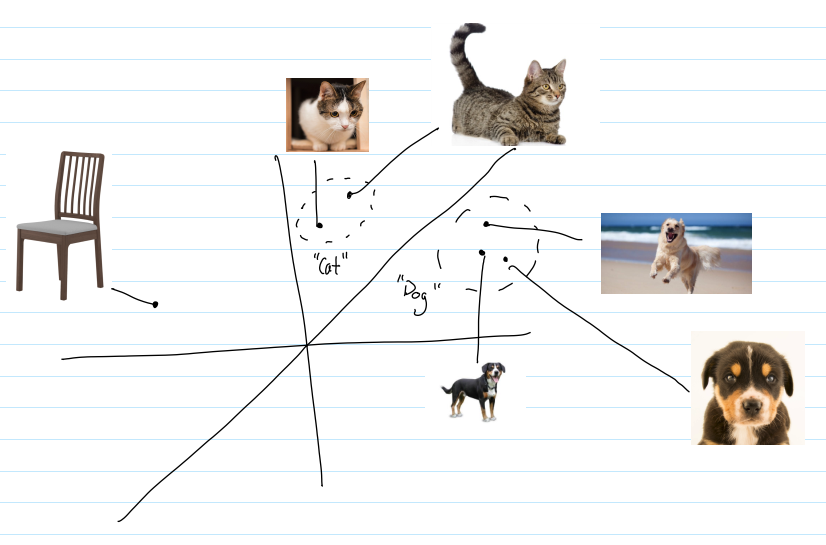 "Cat"
"Dog"